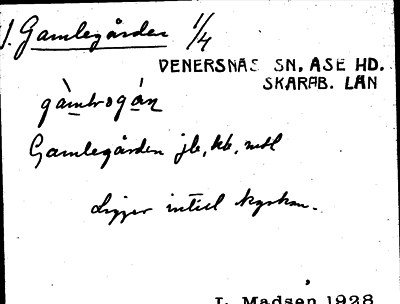 1. Gamlegården 1/4
VENERSNÄS SN, ÅSE HD.
SKARAB. LÄN
gàmbrogán
Gamlegården jb, kb, mtl
Ligger intill kyrkan.
L. Madsen 1928